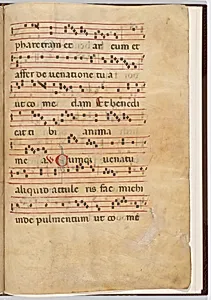 pharetram et ar cum et
affer de venatione tu a
ut co me dam Et benedi
cat ti bi anima
me a Cumq venatu
aliquid attule ris fac michi
inde pulmentum ut co me